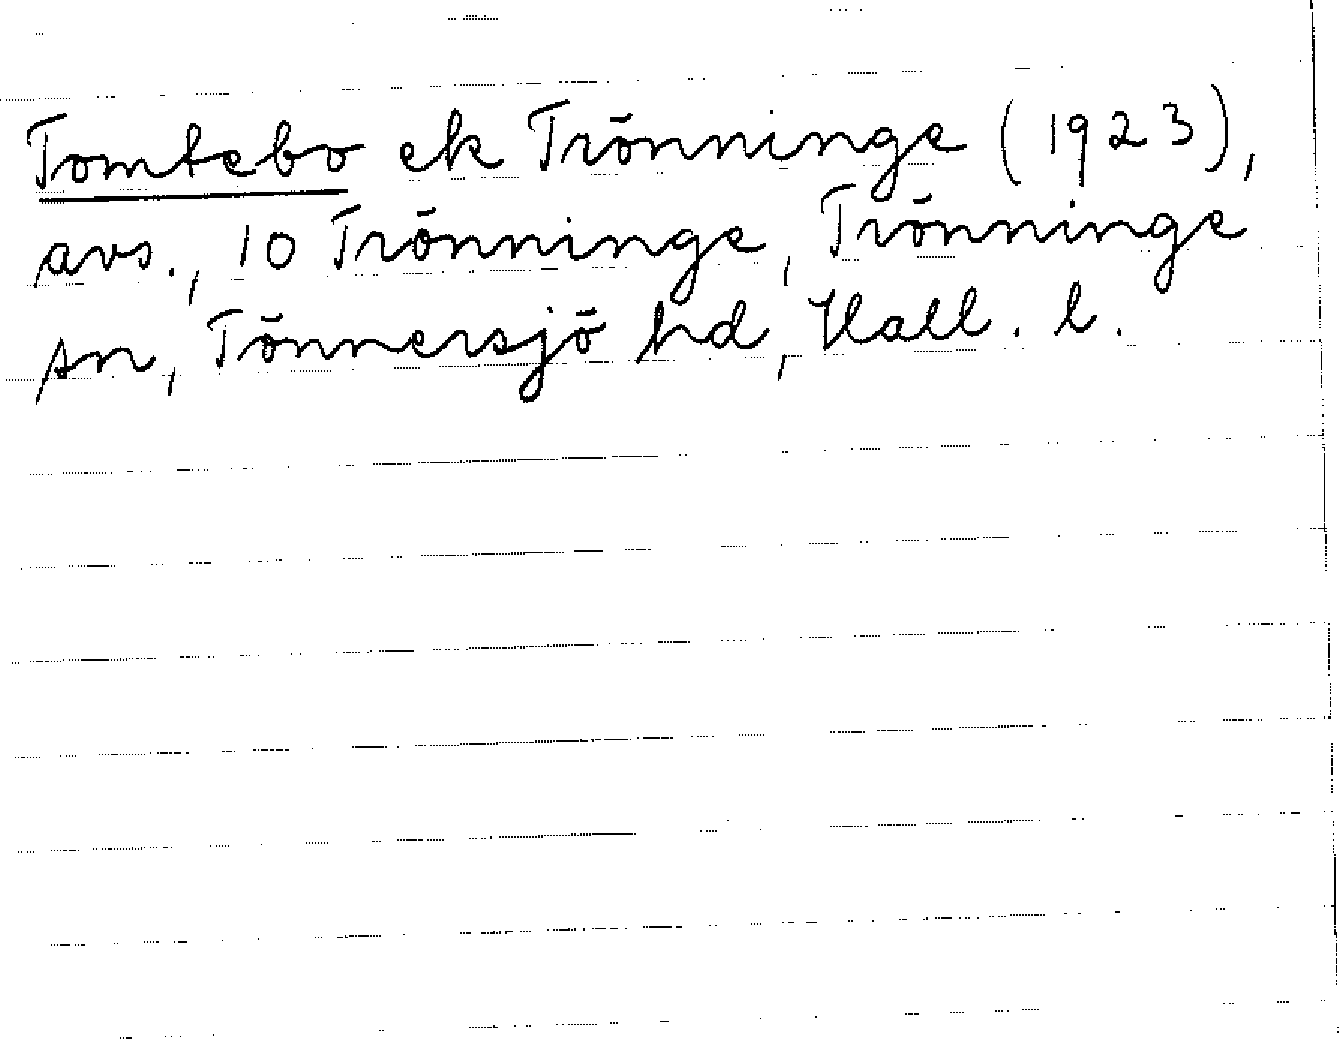 Tomtebo ek Trönninge (1923),
avs., 10 Trönninge, Trönninge
sn, Tönnersjö hd, Hall. l.